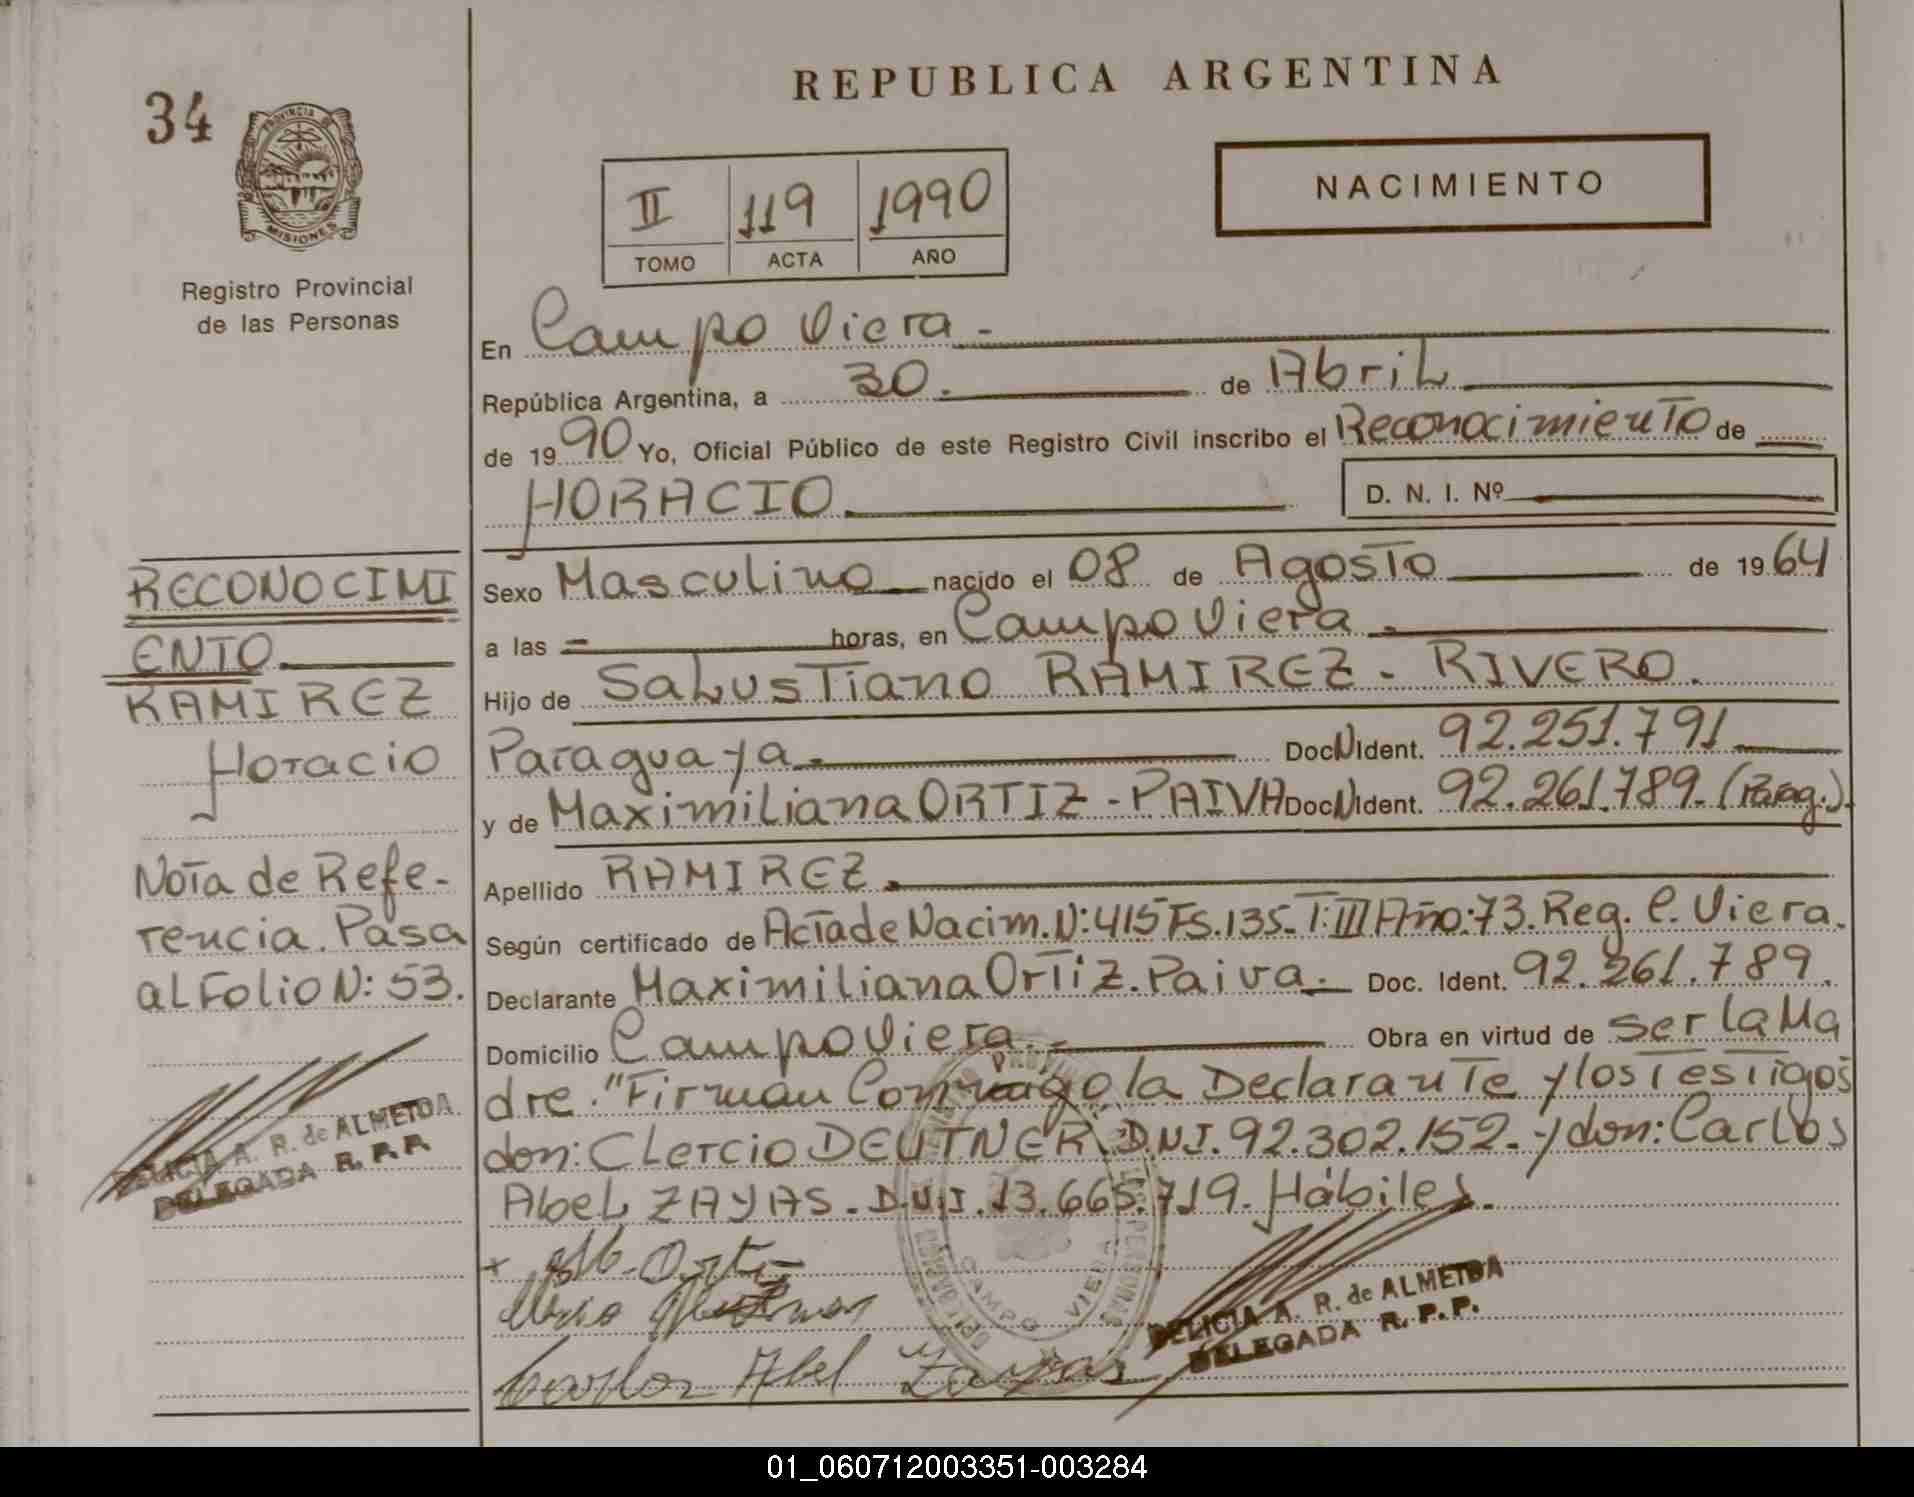 34
PROVINCIA DE
MISIONES
Registro Provincial
de las Personas
REPUBLICA ARGENTINA
II 119 1990
TOMO ACTA AÑO
NACIMIENTO
En Campo Viera -
República Argentina, a 30. de Abril
de 1990 Yo, Oficial Público de este Registro Civil inscribo el Reconocimiento de
HORACIO D. N. I. Nº
Sexo Masculino nacido el 08 de Agosto de 1964
a las - horas, en Campo Viera
Hijo de Salustiano RAMIREZ - RIVERO.
Paraguaya Doc N Ident. 92.251.791
y de Maximiliana ORTIZ - PAIVA Doc N Ident. 92.261.789. (Parag.).
Apellido RAMIREZ.
Según certificado de Acta de Nacim. N: 415 Fs. 135. T: III Año: 73. Reg. C. Viera.
Declarante Maximiliana Ortiz. Paiva. Doc. Ident. 92.261.789.
Domicilio Campo Viera. Obra en virtud de ser la Ma
dre. "Firman Conmigo la Declarante y los Testigos
don: Clercio DEUTNER D.N.I. 92.302.152. y don: Carlos
Abel ZAYAS. D.N.I. 13.665.719. Hábiles.
M. Orti
Carlos Abel Zayas
CAMPO VIERA
DELICIA A. R. de ALMEIDA
DELEGADA R. P. P.
RECONOCIMI
ENTO
RAMIREZ
Horacio
Nota de Refe-
rencia. Pasa
al Folio N: 53.
DELICIA A. R. de ALMEIDA
DELEGADA R. P. P.
01_060712003351-003284